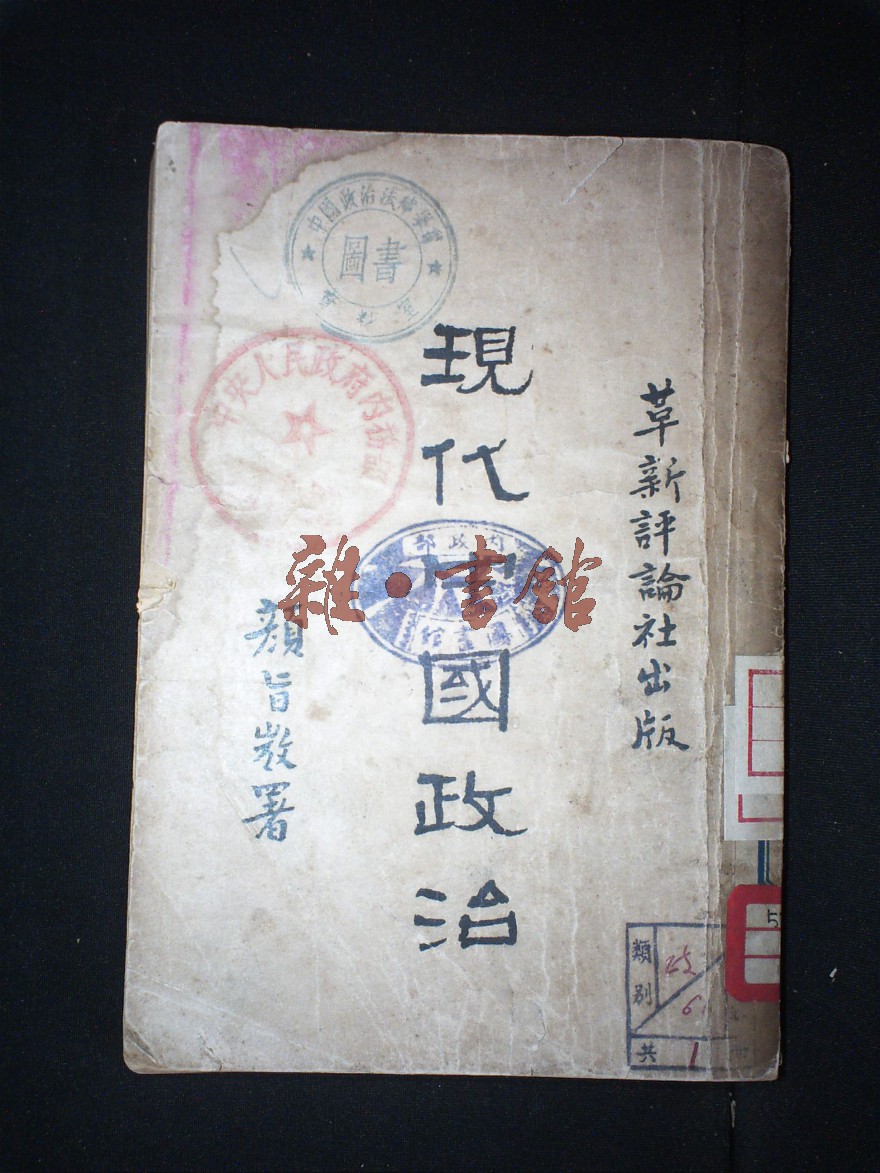 革新評論社出版
現代中國政治
顏旨微署
中國政治法律學會
圖書
資料室
中央人民政府內務部
內政部
圖書館
雜·書館
類別
政
6
共
1
5